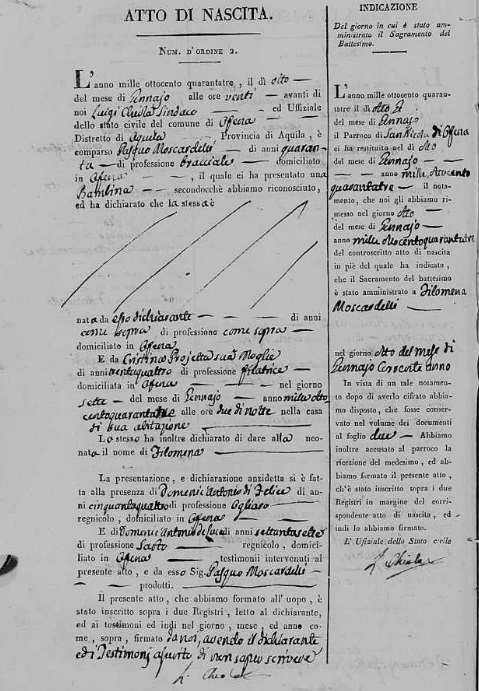 ATTO DI NASCITA.
NUM. D'ORDINE 2.
L'anno mille ottocento quarantatre, il dì otto
del mese di Gennajo alle ore venti avanti di
noi Luigi Sindaco ed Uffiziale
dello stato civile del comune di Ofena
Distretto di Aquila Provincia di Aquila, è
comparso Pasquo Moscardelli di anni quaran-
ta di professione bracciale domiciliato
in Ofena, il quale ci ha presentato una
Bambina secondocchè abbiamo riconosciuto,
ed ha dichiarato che la stessa è
nata da esso dichiarante di anni
come sopra di professione come sopra
domiciliato in Ofena
E da Cristina Projetta sua Moglie
di anni trentaquattro di professione filatrice
domiciliata in Ofena nel giorno
sette del mese di Gennajo anno mille otto
centoquarantatre alle ore due di notte nella casa
di sua abitazione
Lo stesso ha inoltre dichiarato di dare alla neo-
nata il nome di Filomena
La presentazione, e dichiarazione anzidetta si è fat-
ta alla presenza di Domenic'Antonio di Felice di an-
ni cinquantaquattro di professione
regnicolo, domiciliato in Ofena
E di Domenic'Antonio di anni settantasette
di professione Sarto regnicolo, domici-
liato in Ofena testimonii intervenuti al
presente atto, e da esso Sig. Pasquo Moscardelli
prodotti.
Il presente atto, che abbiamo formato all'uopo, è
stato inscritto sopra i due Registri, letto al dichiarante,
ed ai testimoni ed indi nel giorno, mese, ed anno co-
me, sopra, firmato da noi, avendo il dichiarante
ed i Testimonj asserito di non saper scrivere
INDICAZIONE
Del giorno in cui è stato am-
ministrato il Sacramento del
Battesimo.
L'anno mille ottocento quaran-
tatre il dì otto
del mese di Gennajo
il Parroco di San Nicola di Ofena
ci ha restituito nel dì otto
del mese di Gennajo
anno mille Ottocento
quarantatre il nota-
mento, che noi gli abbiamo ri-
messo nel giorno otto
del mese di Gennajo
anno mille ottocentoquarantatre
del controscritto atto di nascita
in piè del quale ha indicato,
che il Sacramento del battesimo
è stato amministrato a Filomena
Moscardelli
nel giorno otto del mese di
Gennajo Corrente anno
In vista di un tale notamento
dopo di averlo cifrato abbiamo
disposto, che fosse conser-
vato nel volume dei documenti
al foglio due Abbiamo
inoltre accusato al parroco la
ricezione del medesimo, ed ab-
biamo formato il presente atto,
ch'è stato inscritto sopra i due
Registri in margine del corri-
spondente atto di nascita, ed
indi lo abbiamo firmato.
L'Uffiziale dello Stato civile